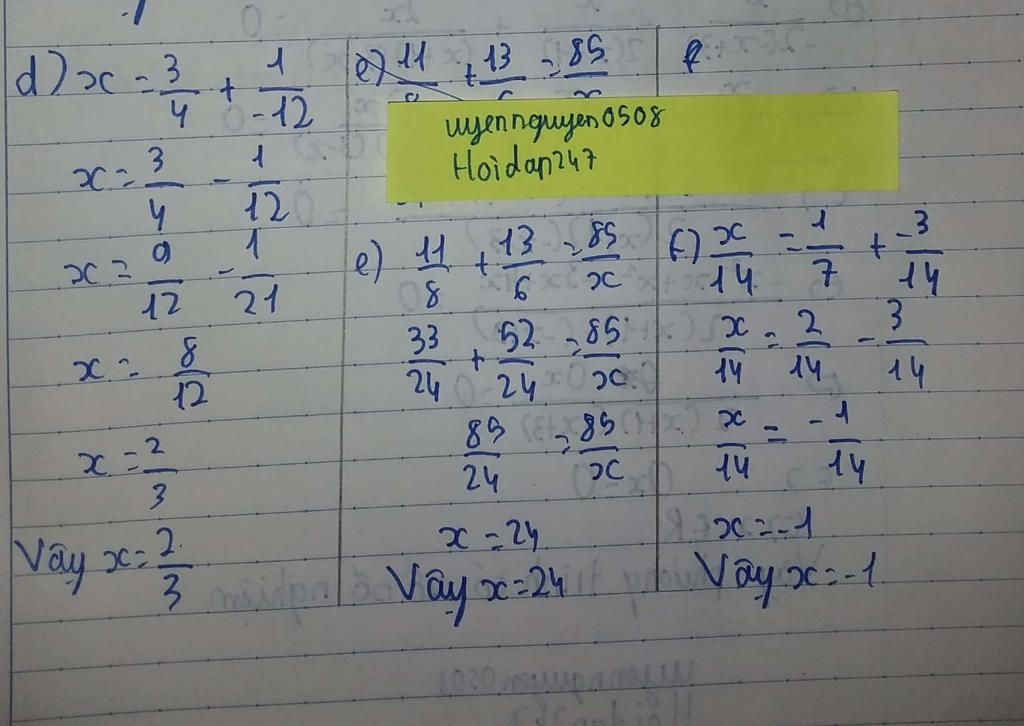 d) x = 3/4 + 1/-12
x = 3/4 - 1/12
x = 9/12 - 1/21
x = 8/12
x = 2/3
Vây x = 2/3
e) 11/8 + 13/6 = 85/x
uyennguyen0508
Hoidap247
e) 11/8 + 13/6 = 85/x
33/24 + 52/24 = 85/x
85/24 = 85/x
x = 24
Vây x = 24
f) x/14 = 1/7 + -3/14
x/14 = 2/14 - 3/14
x/14 = -1/14
x = -1
Vây x = -1